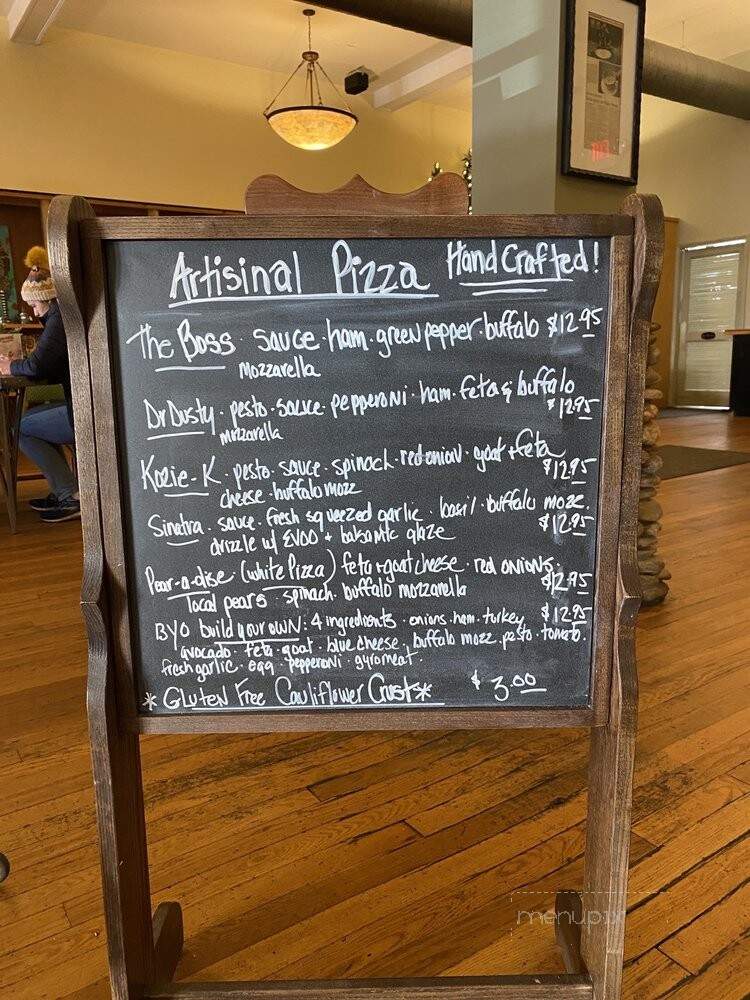 Artisinal Pizza Hand Crafted!
The Boss · sauce · ham · green pepper · buffalo $12.95
mozzarella
Dr Dusty · pesto · sauce · pepperoni · ham · feta & buffalo
mozzarella $12.95
Kozie-K · pesto · sauce · spinach · red onion · goat + feta
cheese · buffalo mozz $12.95
Sinatra · sauce · fresh squeezed garlic · basil · buffalo mozz.
drizzle w/ EVOO + balsamic glaze $12.95
Pear-a-dise · (white Pizza) feta + goat cheese · red onions ·
local pears · spinach · buffalo mozzarella $12.95
BYO build your own: 4 ingredients · onions · ham · turkey $12.95
avocado · feta · goat · blue cheese · buffalo mozz · pesto · tomato ·
fresh garlic · egg · pepperoni · gyro meat ·
* Gluten Free Cauliflower Crust * $3.00
menupix